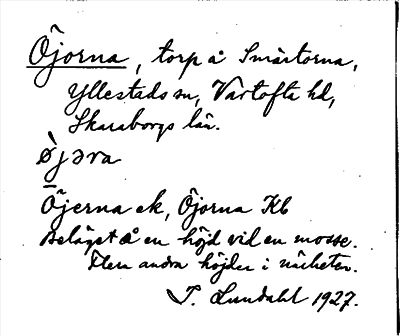 Öjorna, torp å Smårtorna,
Yllestads sn, Vartofta hd,
Skaraborgs län.
ö̀jəra
Öjerna ek, Öjorna Kb
Beläget å en höjd vid en mosse.
Flera andra höjder i närheten.
T. Lundahl 1927.